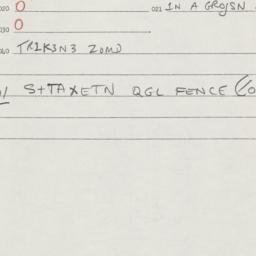 020 O 021 IN A GROJSN
030 O
040 TRIK3N3 ZOMD
S+TAXETN QGL FENCE